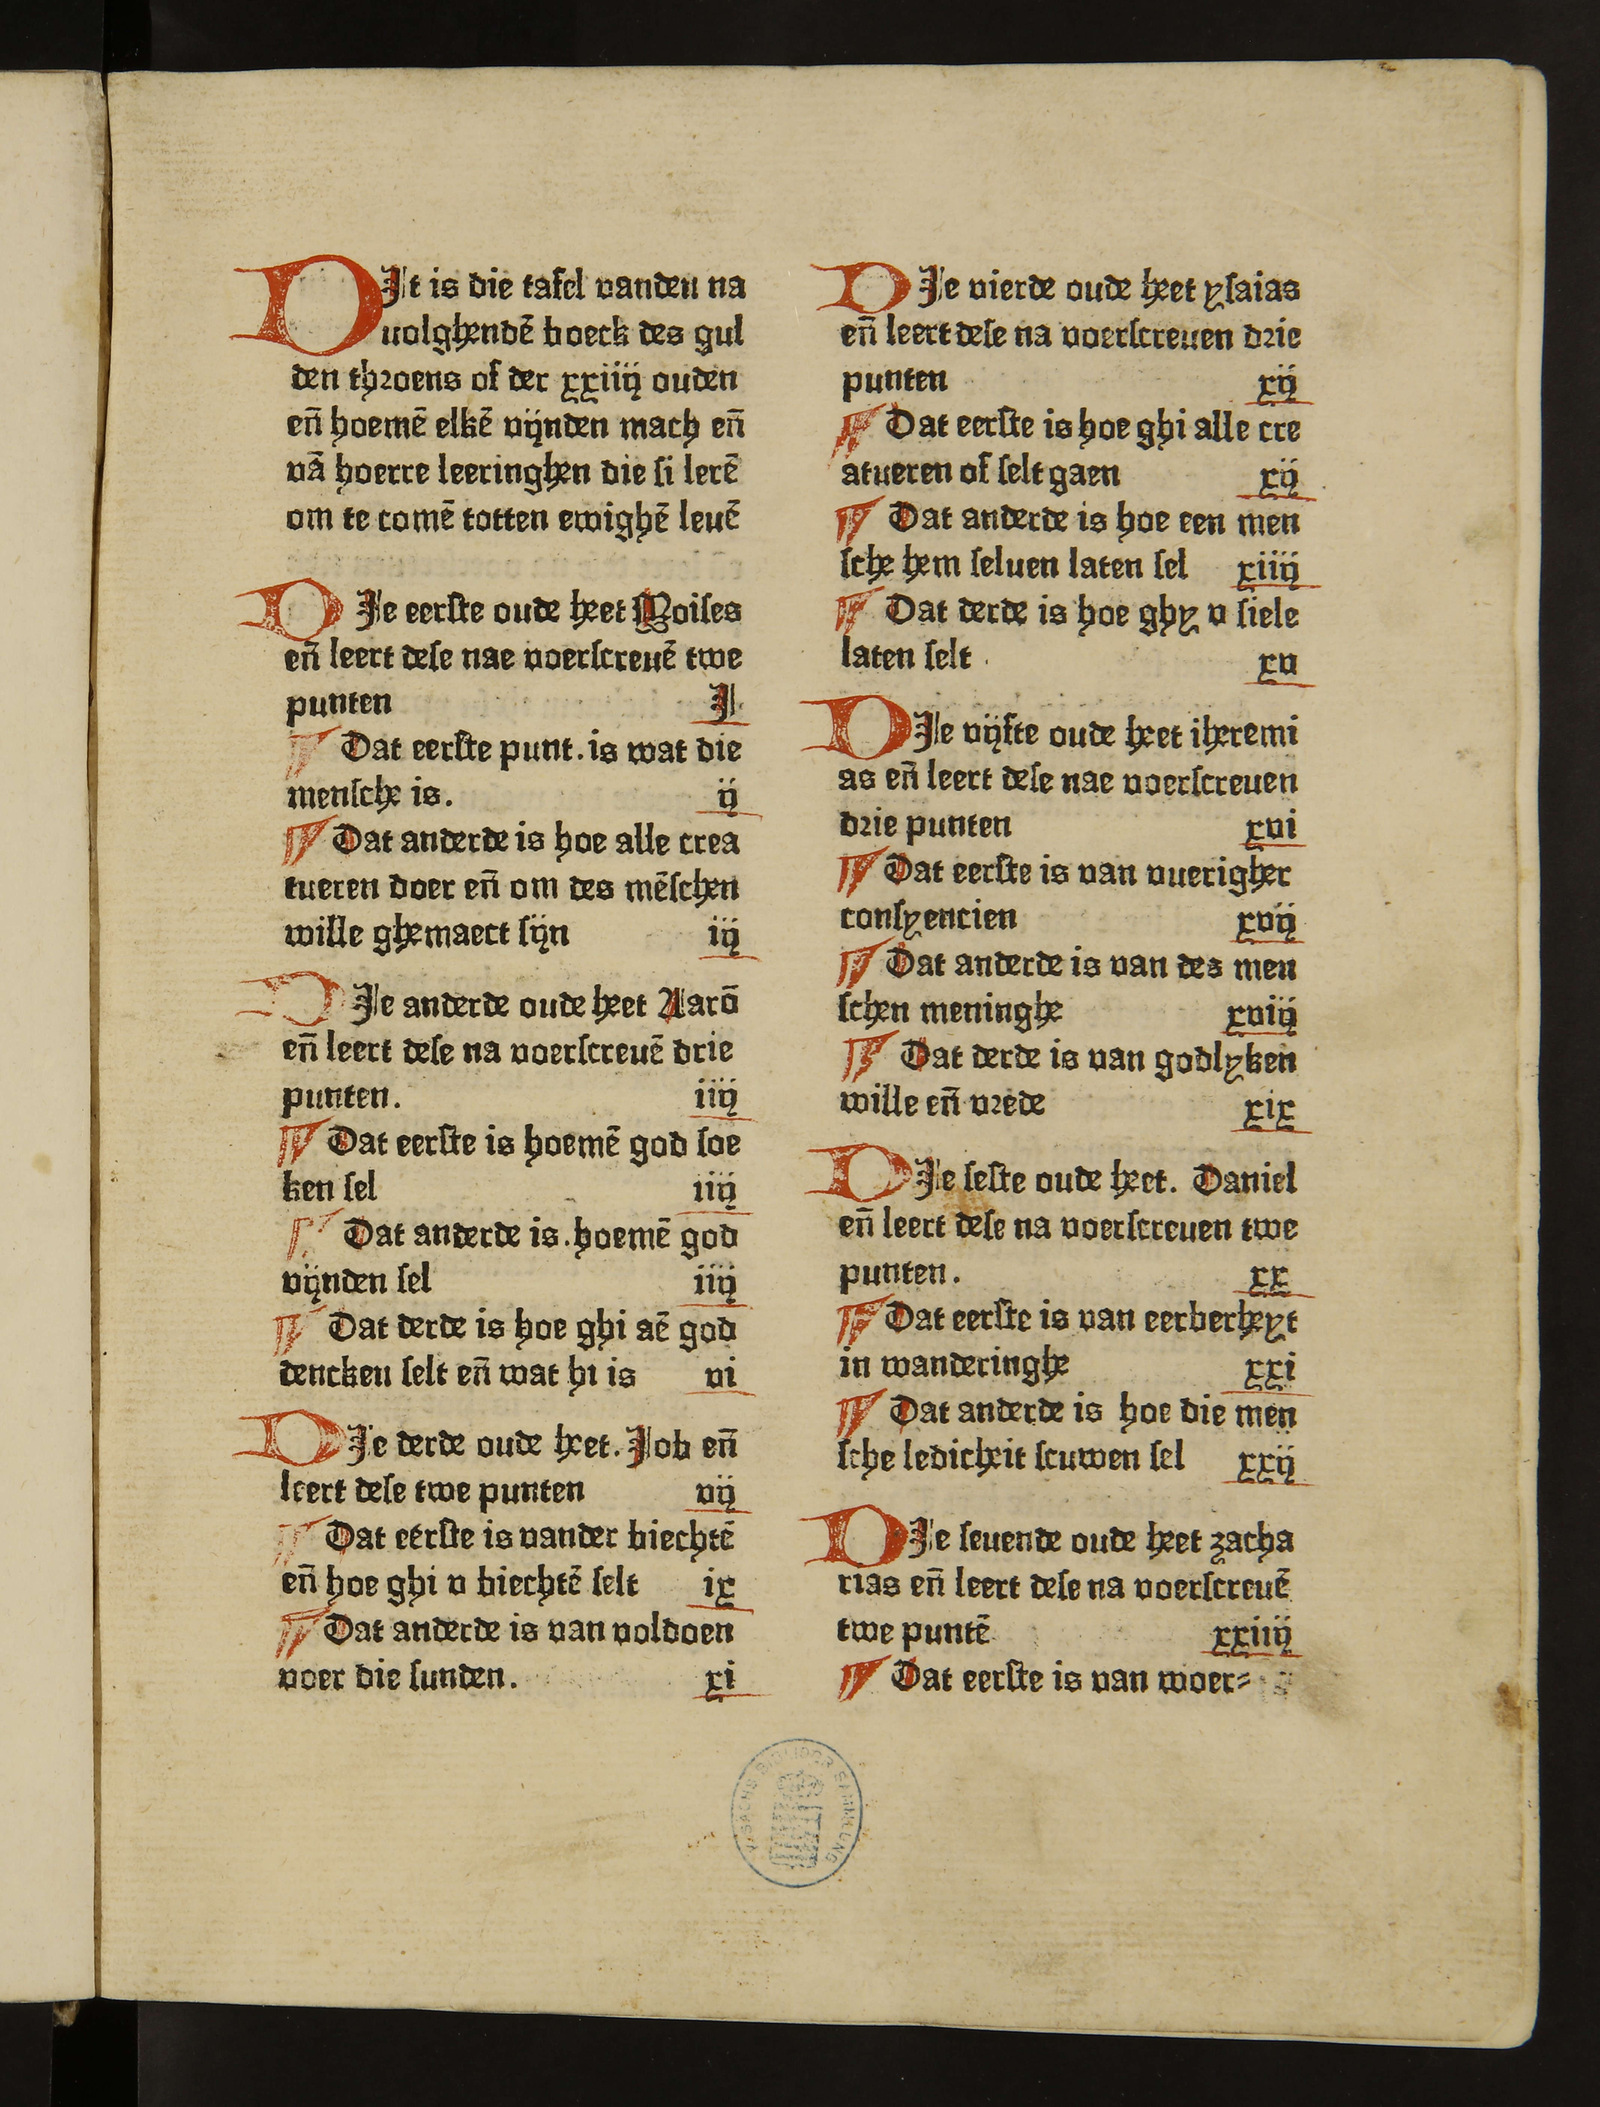 DIt is die tafel vanden na
uolghendē boeck des gul
den throens of der xxiiij ouden
eñ hoemē elkē vijnden mach eñ
vā hoerre leeringhen die ſi lerē
om te comē totten ewighē leuē
DIe eerſte oude heet Moiſes
eñ leert deſe nae voerſcreuē twe
punten I
¶ Dat eerſte punt. is wat die
menſche is. ij
¶ Dat anderde is hoe alle crea
tueren doer eñ om des mēſchen
wille ghemaect ſijn iij
DIe anderde oude heet Aarō
eñ leert deſe na voerſcreuē drie
punten. iiij
¶ Dat eerſte is hoemē god ſoe
ken ſel iiij
¶ Dat anderde is. hoemē god
vijnden ſel iiij
¶ Dat derde is hoe ghi aē god
dencken ſelt eñ wat hi is vi
DIe derde oude heet. Job eñ
leert deſe twe punten vij
¶ Dat eerſte is vander biechtē
eñ hoe ghi v biechtē ſelt ix
¶ Dat anderde is van voldoen
voer die ſunden. xi
DIe vierde oude heet yſaias
eñ leert deſe na voerſcreuen drie
punten xij
¶ Dat eerſte is hoe ghi alle cre
atueren of ſelt gaen xij
¶ Dat anderde is hoe een men
ſche hem ſeluen laten ſel xiiij
¶ Dat derde is hoe ghy v ſiele
laten ſelt. xv
DIe vijfte oude heet iheremi
as eñ leert deſe nae voerſcreuen
drie punten xvi
¶ Dat eerſte is van vuerigher
conſyencien xvij
¶ Dat anderde is van des men
ſchen meninghe xviij
¶ Dat derde is van godlyken
wille eñ vrede xix
DIe ſeſte oude heet. Daniel
eñ leert deſe na voerſcreuen twe
punten. xx
¶ Dat eerſte is van eerberheyt
in wanderinghe xxi
¶ Dat anderde is hoe die men
ſche ledicheit ſcuwen ſel xxij
DIe ſeuende oude heet zacha
rias eñ leert deſe na voerſcreuē
twe puntē xxiiij
¶ Dat eerſte is van woer⸗